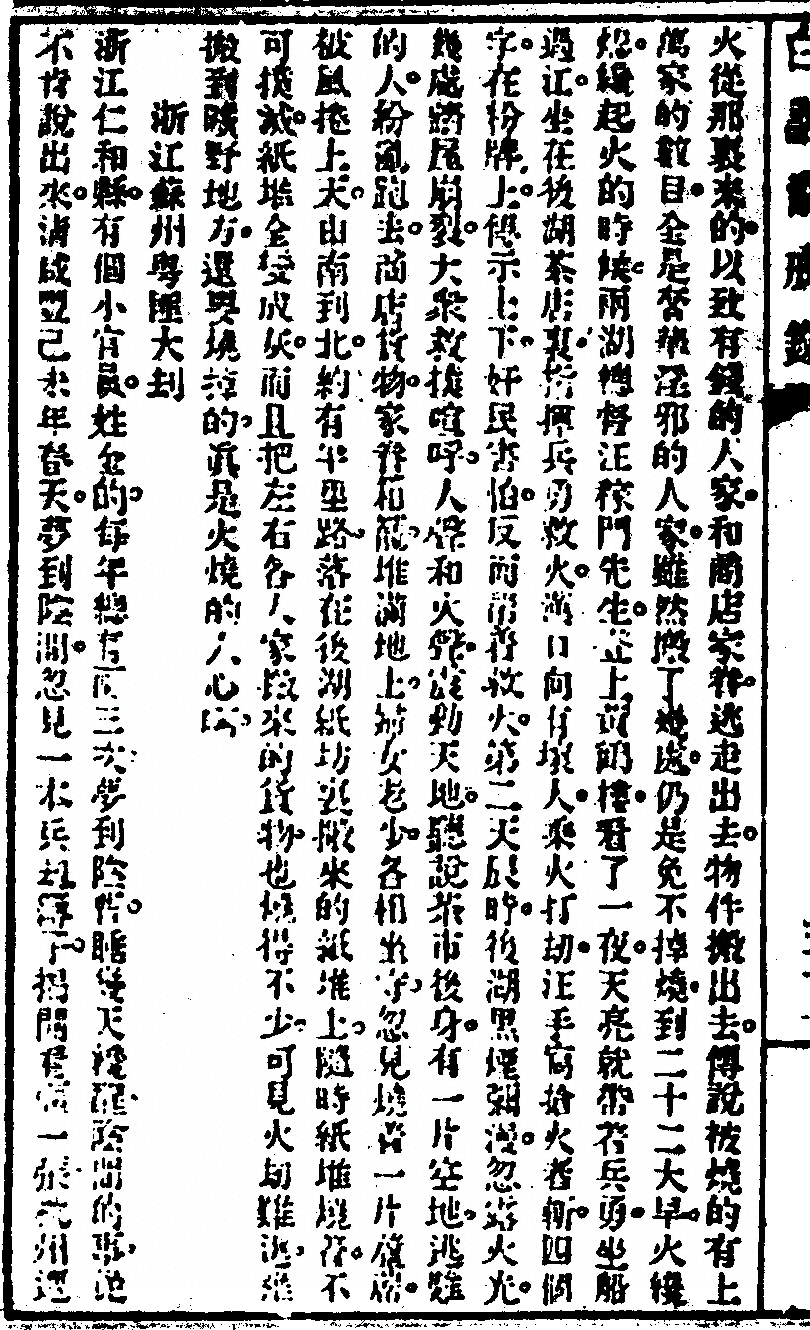 火從那裏來的以致有錢的人家和商店家眷逃走出去物件搬出去傳說被燒的有上
萬家的數目全是奢華淫邪的人家雖然搬了幾處仍是免不掉燒到二十二大早火纔
熄纔起火的時候兩湖總督汪稼門先生登上黃鶴樓看了一夜天亮就帶著兵勇坐船
過江坐在後湖茶店裏指揮兵勇救火滿口向有壞人乘火打劫汪手寫搶火者斬四個
字在粉牌上傳示上下奸民害怕反而幫着救火第二天辰時後湖黑煙朝漫忽露火光
幾處牆屋崩裂大衆救撲喧呼人聲和火聲震動天地聽說茶市後身有一片空地逃難
的人紛亂跑去商店貨物家眷和箱堆滿地上婦女老少各相坐守忽見燒着一片蘆席
被風捲上天由南到北約有半里路落在後湖紙坊裏搬來的紙堆上隨時紙堆燒着不
可撲滅紙堆全變成灰而且把左右各人家搬來的貨物也燒得不少可見火劫難逃雖
搬到曠野地方還要燒掉的眞是火燒的人心啊
浙江蘇州粤匪大刧
浙江仁和縣有個小官員姓金的每年總有兩三次夢到陰間瞎幾天纔醒陰間的事絶
不肯說出來淸咸豐己未年春天夢到陰間忽見一本兵刧簿子揭開看當一張杭州這